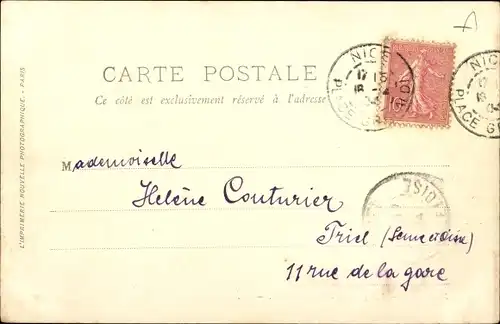 CARTE POSTALE
Ce côté est exclusivement réservé à l'adresse
Mademoiselle
Helène Couturier
Triel (Seine et Oise)
11 rue de la gare
L'IMPRIMERIE NOUVELLE PHOTOGRAPHIQUE. - PARIS
NICE
PLACE
10
NICE
PLACE
OISE
A